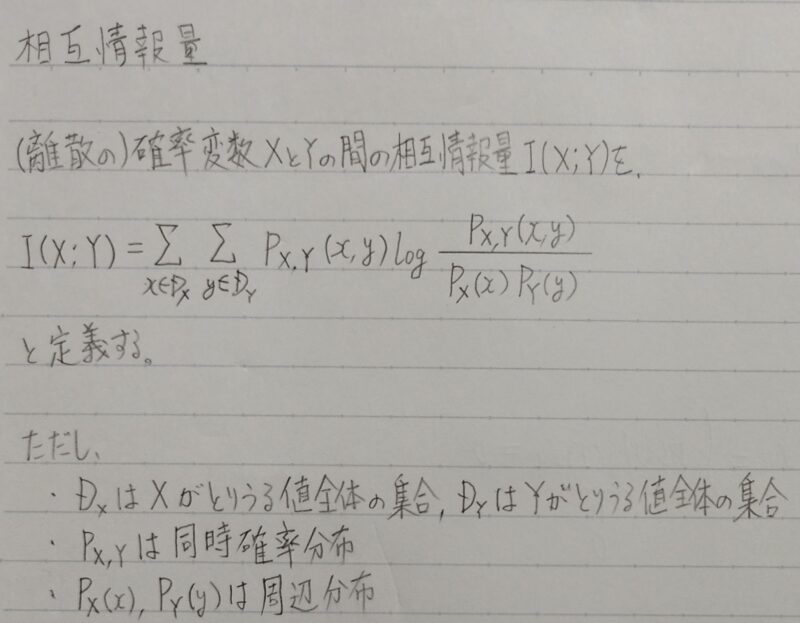 相互情報量
(離散の)確率変数XとYの間の相互情報量I(X;Y)を,
I(X;Y) = ∑_{x∈D_X} ∑_{y∈D_Y} P_{X,Y}(x,y) log \frac{P_{X,Y}(x,y)}{P_X(x) P_Y(y)}
と定義する。
ただし、
・D_XはXがとりうる値全体の集合, D_YはYがとりうる値全体の集合
・P_{X,Y}は同時確率分布
・P_X(x), P_Y(y)は周辺分布